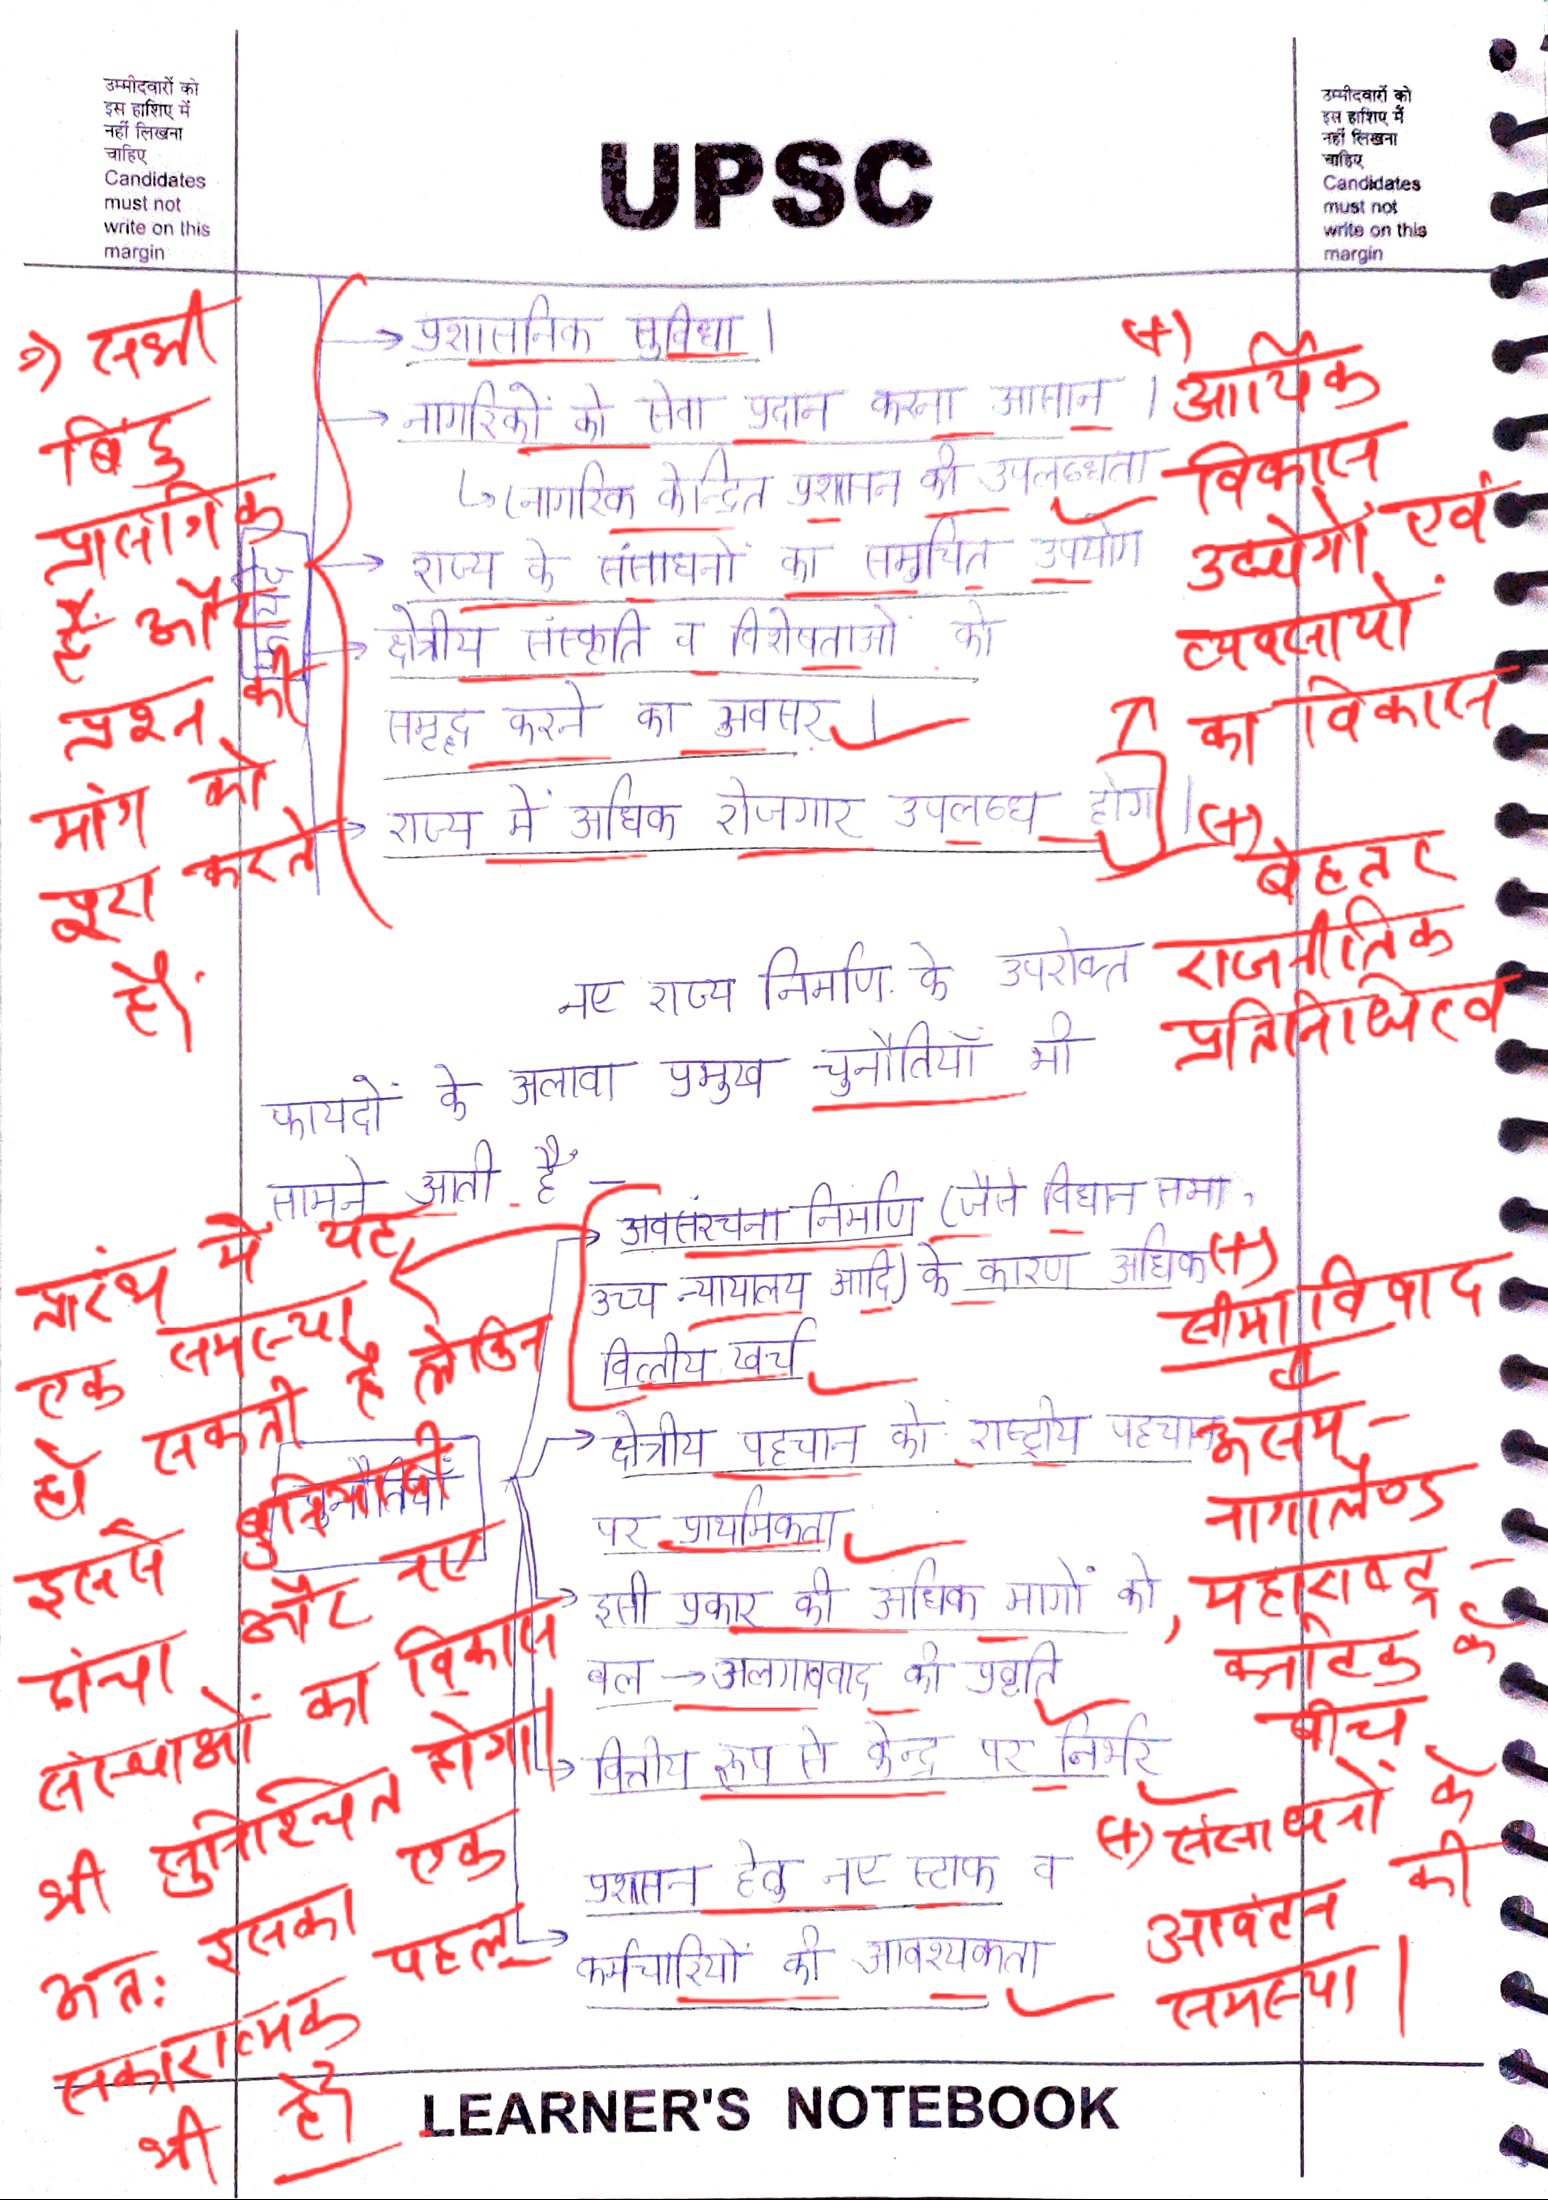 उम्मीदवारों को
इस हाशिए में
नहीं लिखना
चाहिए
Candidates
must not
write on this
margin
UPSC
उम्मीदवारों को
इस हाशिए में
नहीं लिखना
चाहिए
Candidates
must not
write on this
margin
→ प्रशासनिक सुविधा।
→ नागरिकों को सेवा प्रदान करना आसान।
↳ (नागरिक केन्द्रित प्रशासन की उपलब्धता
→ राज्य के संसाधनों का समुचित उपयोग
→ क्षेत्रीय संस्कृति व विशेषताओं को
समृद्ध करने का अवसर।
→ राज्य में अधिक रोजगार उपलब्ध होगा।
नए राज्य निर्माण के उपरोक्त
फायदों के अलावा प्रमुख चुनौतियाँ भी
सामने आती हैं –
चुनौतियाँ
→ अवसंरचना निर्माण (जैसे विधान सभा,
उच्च न्यायालय आदि) के कारण अधिक
वित्तीय खर्च
→ क्षेत्रीय पहचान को राष्ट्रीय पहचान
पर प्राथमिकता
→ इसी प्रकार की अधिक मांगों को
बल → अलगाववाद की प्रवृति
→ वित्तीय रूप से केन्द्र पर निर्भर
प्रशासन हेतु नए स्टाफ व
→ कर्मचारियों की आवश्यकता
सभी
बिंदु
प्रासंगिक
हैं और
प्रश्न की
मांग को
पूरा करते
हैं।
प्रारंभ में यह
एक समस्या
हो सकती है लेकिन
इससे बुनियादी
ढांचा और नए
संस्थाओं का विकास
भी सुनिश्चित होगा।
अतः इसका एक
सकारात्मक पहलू
भी है।
(+)
आर्थिक
विकास
उद्योगों एवं
व्यवसायों
का विकास
(+)
बेहतर
राजनीतिक
प्रतिनिधित्व
(+)
सीमा विवाद
असम -
नागालैण्ड
, महाराष्ट्र -
कर्नाटक के
बीच
(+) संसाधनों के
आवंटन की
समस्या।
LEARNER'S NOTEBOOK